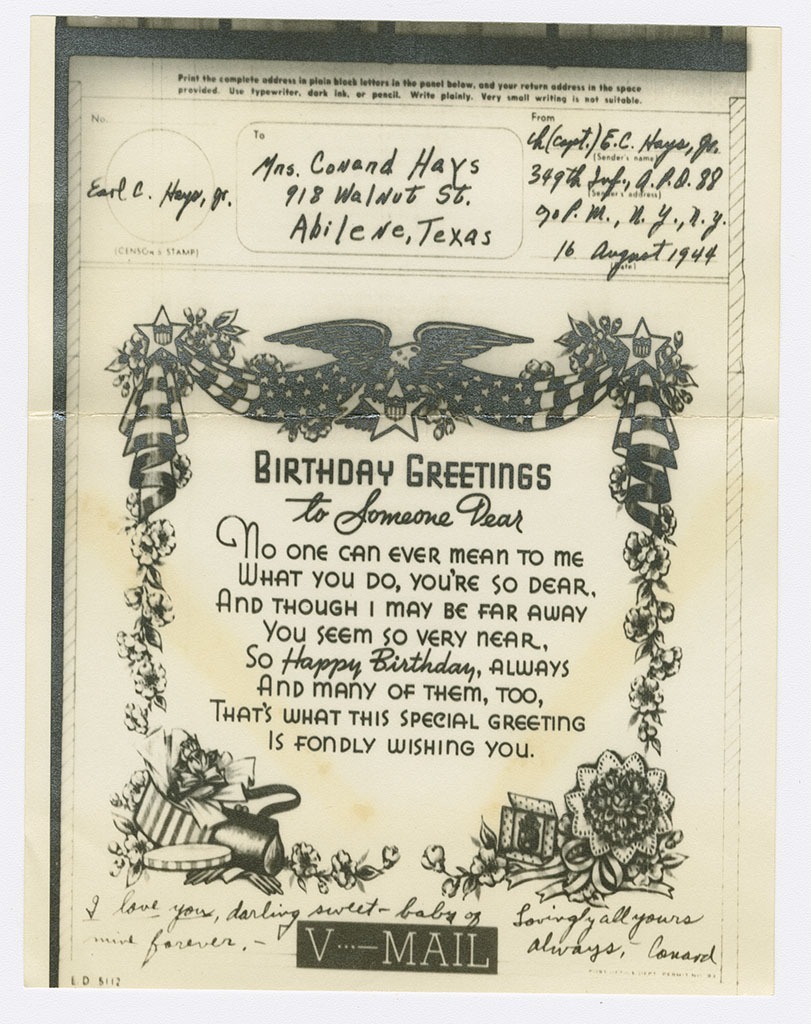 Print the complete address in plain block letters in the panel below, and your return address in the space
provided. Use typewriter, dark ink, or pencil. Write plainly. Very small writing is not suitable.
No.
Earl C. Hays, Jr.
(CENSOR'S STAMP)
To
Mrs. Conard Hays
918 Walnut St.
Abilene, Texas
From
Ch (Capt.) E. C. Hays, Jr.
(Sender's name)
349th Inf., A.P.O. 88
(Sender's address)
℅ P. M., N. Y., N. Y.
16 August 1944
(Date)
BIRTHDAY GREETINGS
to Someone Dear
NO ONE CAN EVER MEAN TO ME
WHAT YOU DO, YOU'RE SO DEAR,
AND THOUGH I MAY BE FAR AWAY
YOU SEEM SO VERY NEAR,
SO Happy Birthday, ALWAYS
AND MANY OF THEM, TOO,
THAT'S WHAT THIS SPECIAL GREETING
IS FONDLY WISHING YOU.
I love you, darling sweet-baby of
mine forever. -
Lovingly all yours
always, Conard
V···—MAIL
E D 5112